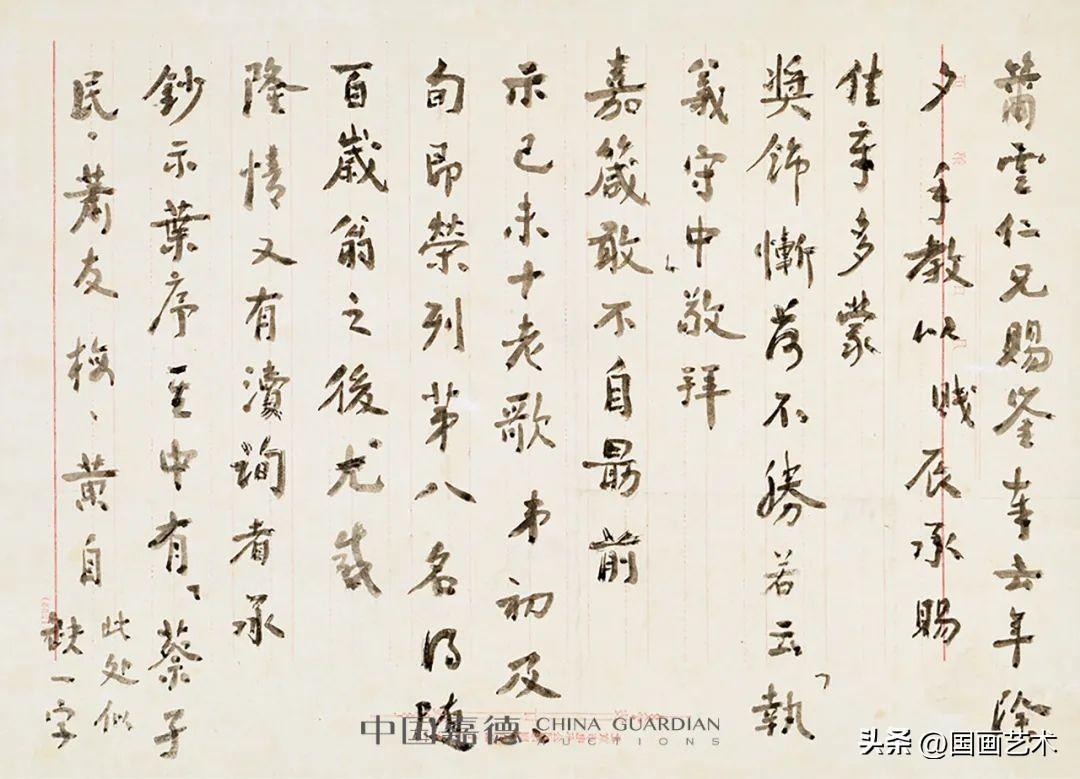 雲仁兄賜鑒奉去年除
夕手教以賤辰承賜
佳章多蒙
獎飾慚荷不勝若云「執
義守中」敬拜
嘉箴敢不自勗前
示己未十老歌弟初及
旬即榮列第八名得隨
百歲翁之後尤感
隆情又有瀆詢者承
鈔示葉序中有「蔡子
民、蕭友梅、黃自
此处似
缺一字
中国嘉德 CHINA GUARDIAN
AUCTIONS
头条 @国画艺术